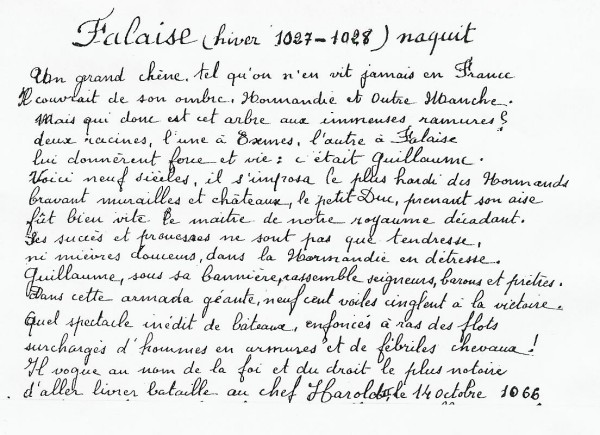 Falaise (hiver 1027-1028) naquit
Un grand chêne, tel qu'on n'en vit jamais en France
Il couvrait de son ombre, Normandie et Outre Manche.
Mais qui donc est cet arbre aux immenses ramures?
deux racines, l'une à Exmes, l'autre à Falaise
lui donnèrent force et vie : c'était Guillaume.
Voici neuf siècles, il s'imposa le plus hardi des Normands
bravant murailles et châteaux, le petit Duc, prenant son aise
fût bien vite le maitre de notre royaume décadant.
Ses succès et prouesses ne sont pas que tendresse,
ni mièvres douceurs, dans la Normandie en détresse.
Guillaume, sous sa bannière, rassemble seigneurs, barons et prêtres.
Dans cette armada géante, neuf cent voiles cinglent à la victoire.
Quel spectacle inédit de bâteaux, enfoncés à ras des flots
surchargés d'hommes en armures et de fébriles chevaux!
Il vogue au nom de la foi et du droit le plus notoire
d'aller livrer bataille au chef Harold, le 14 octobre 1066